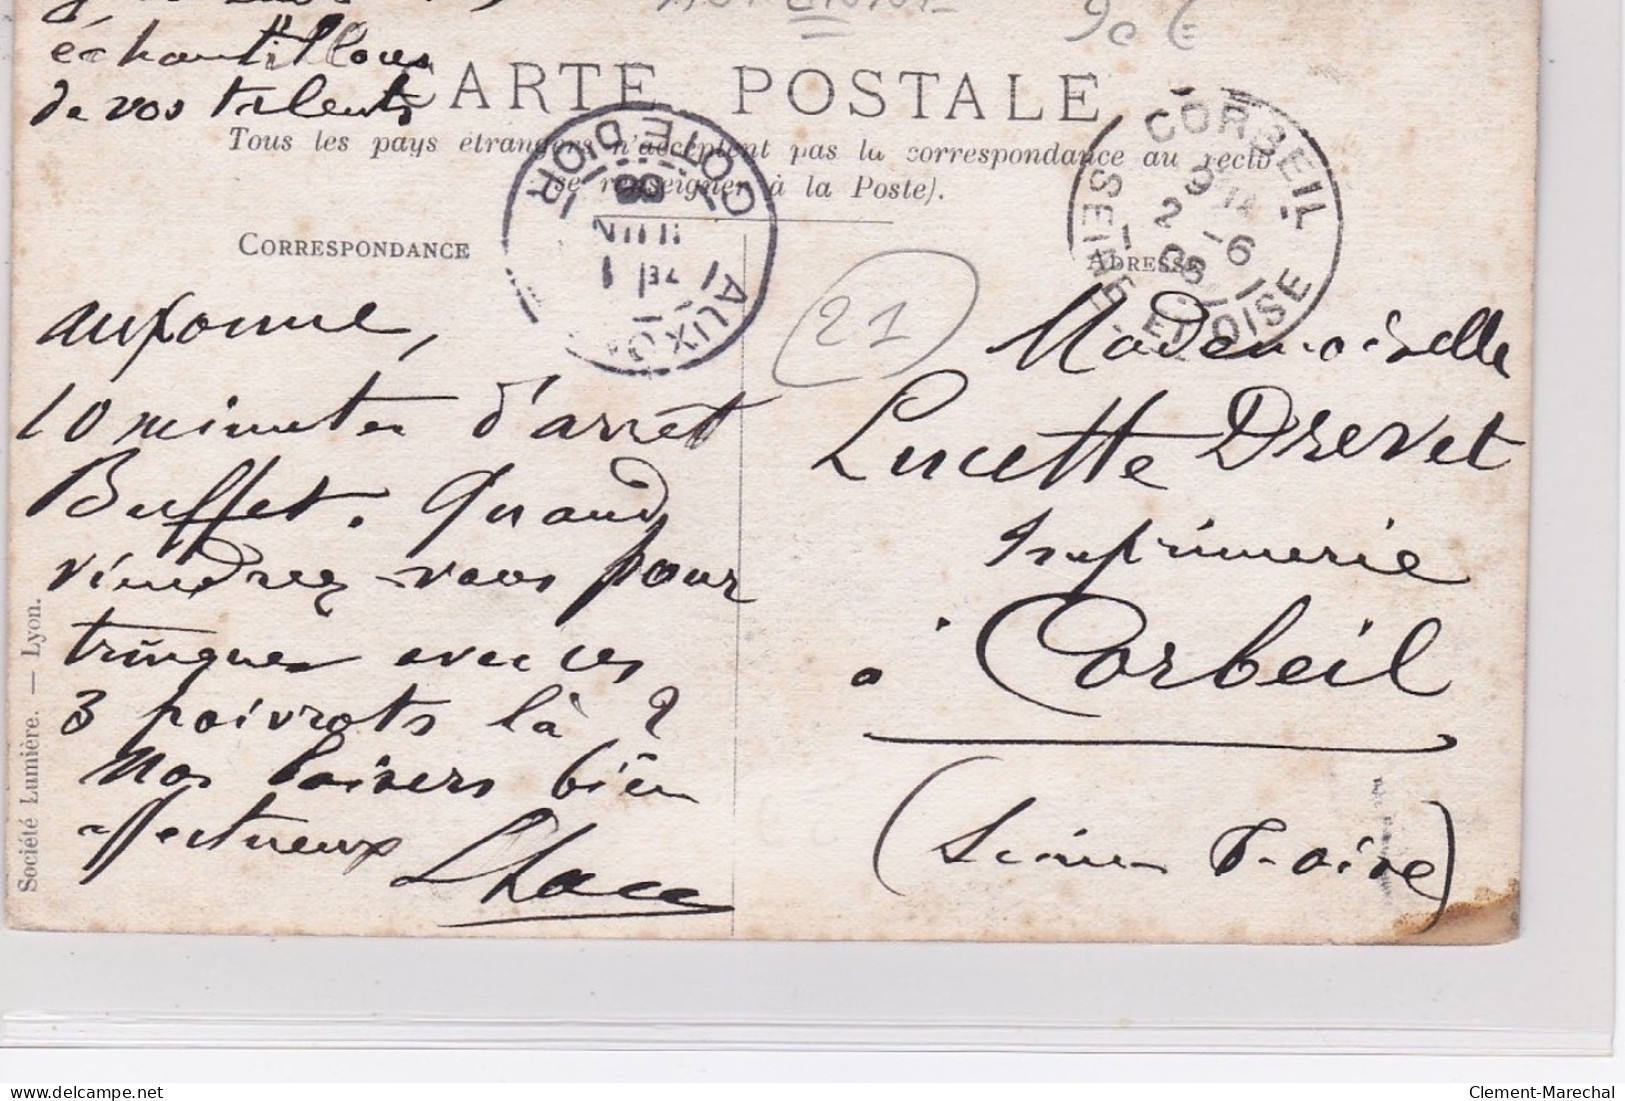 échantillons
de vos talents
CARTE POSTALE
Tous les pays étrangers n'acceptent pas la correspondance au recto
se renseigner à la Poste).
CORRESPONDANCE
ADRESSE
COTE D'OR
CORBEIL
SEINE-ET-OISE
21
Auxonne,
10 minutes d'arret
Buffet. Quand
viendrez-vous pour
trinquer avec ces
3 poivrots là ?
Nos baisers bien
affectueux
Mademoiselle
Lucette Drevet
Imprimerie
à Corbeil
(Seine & Oise)
Société Lumière. — Lyon.
Clement-Marechal